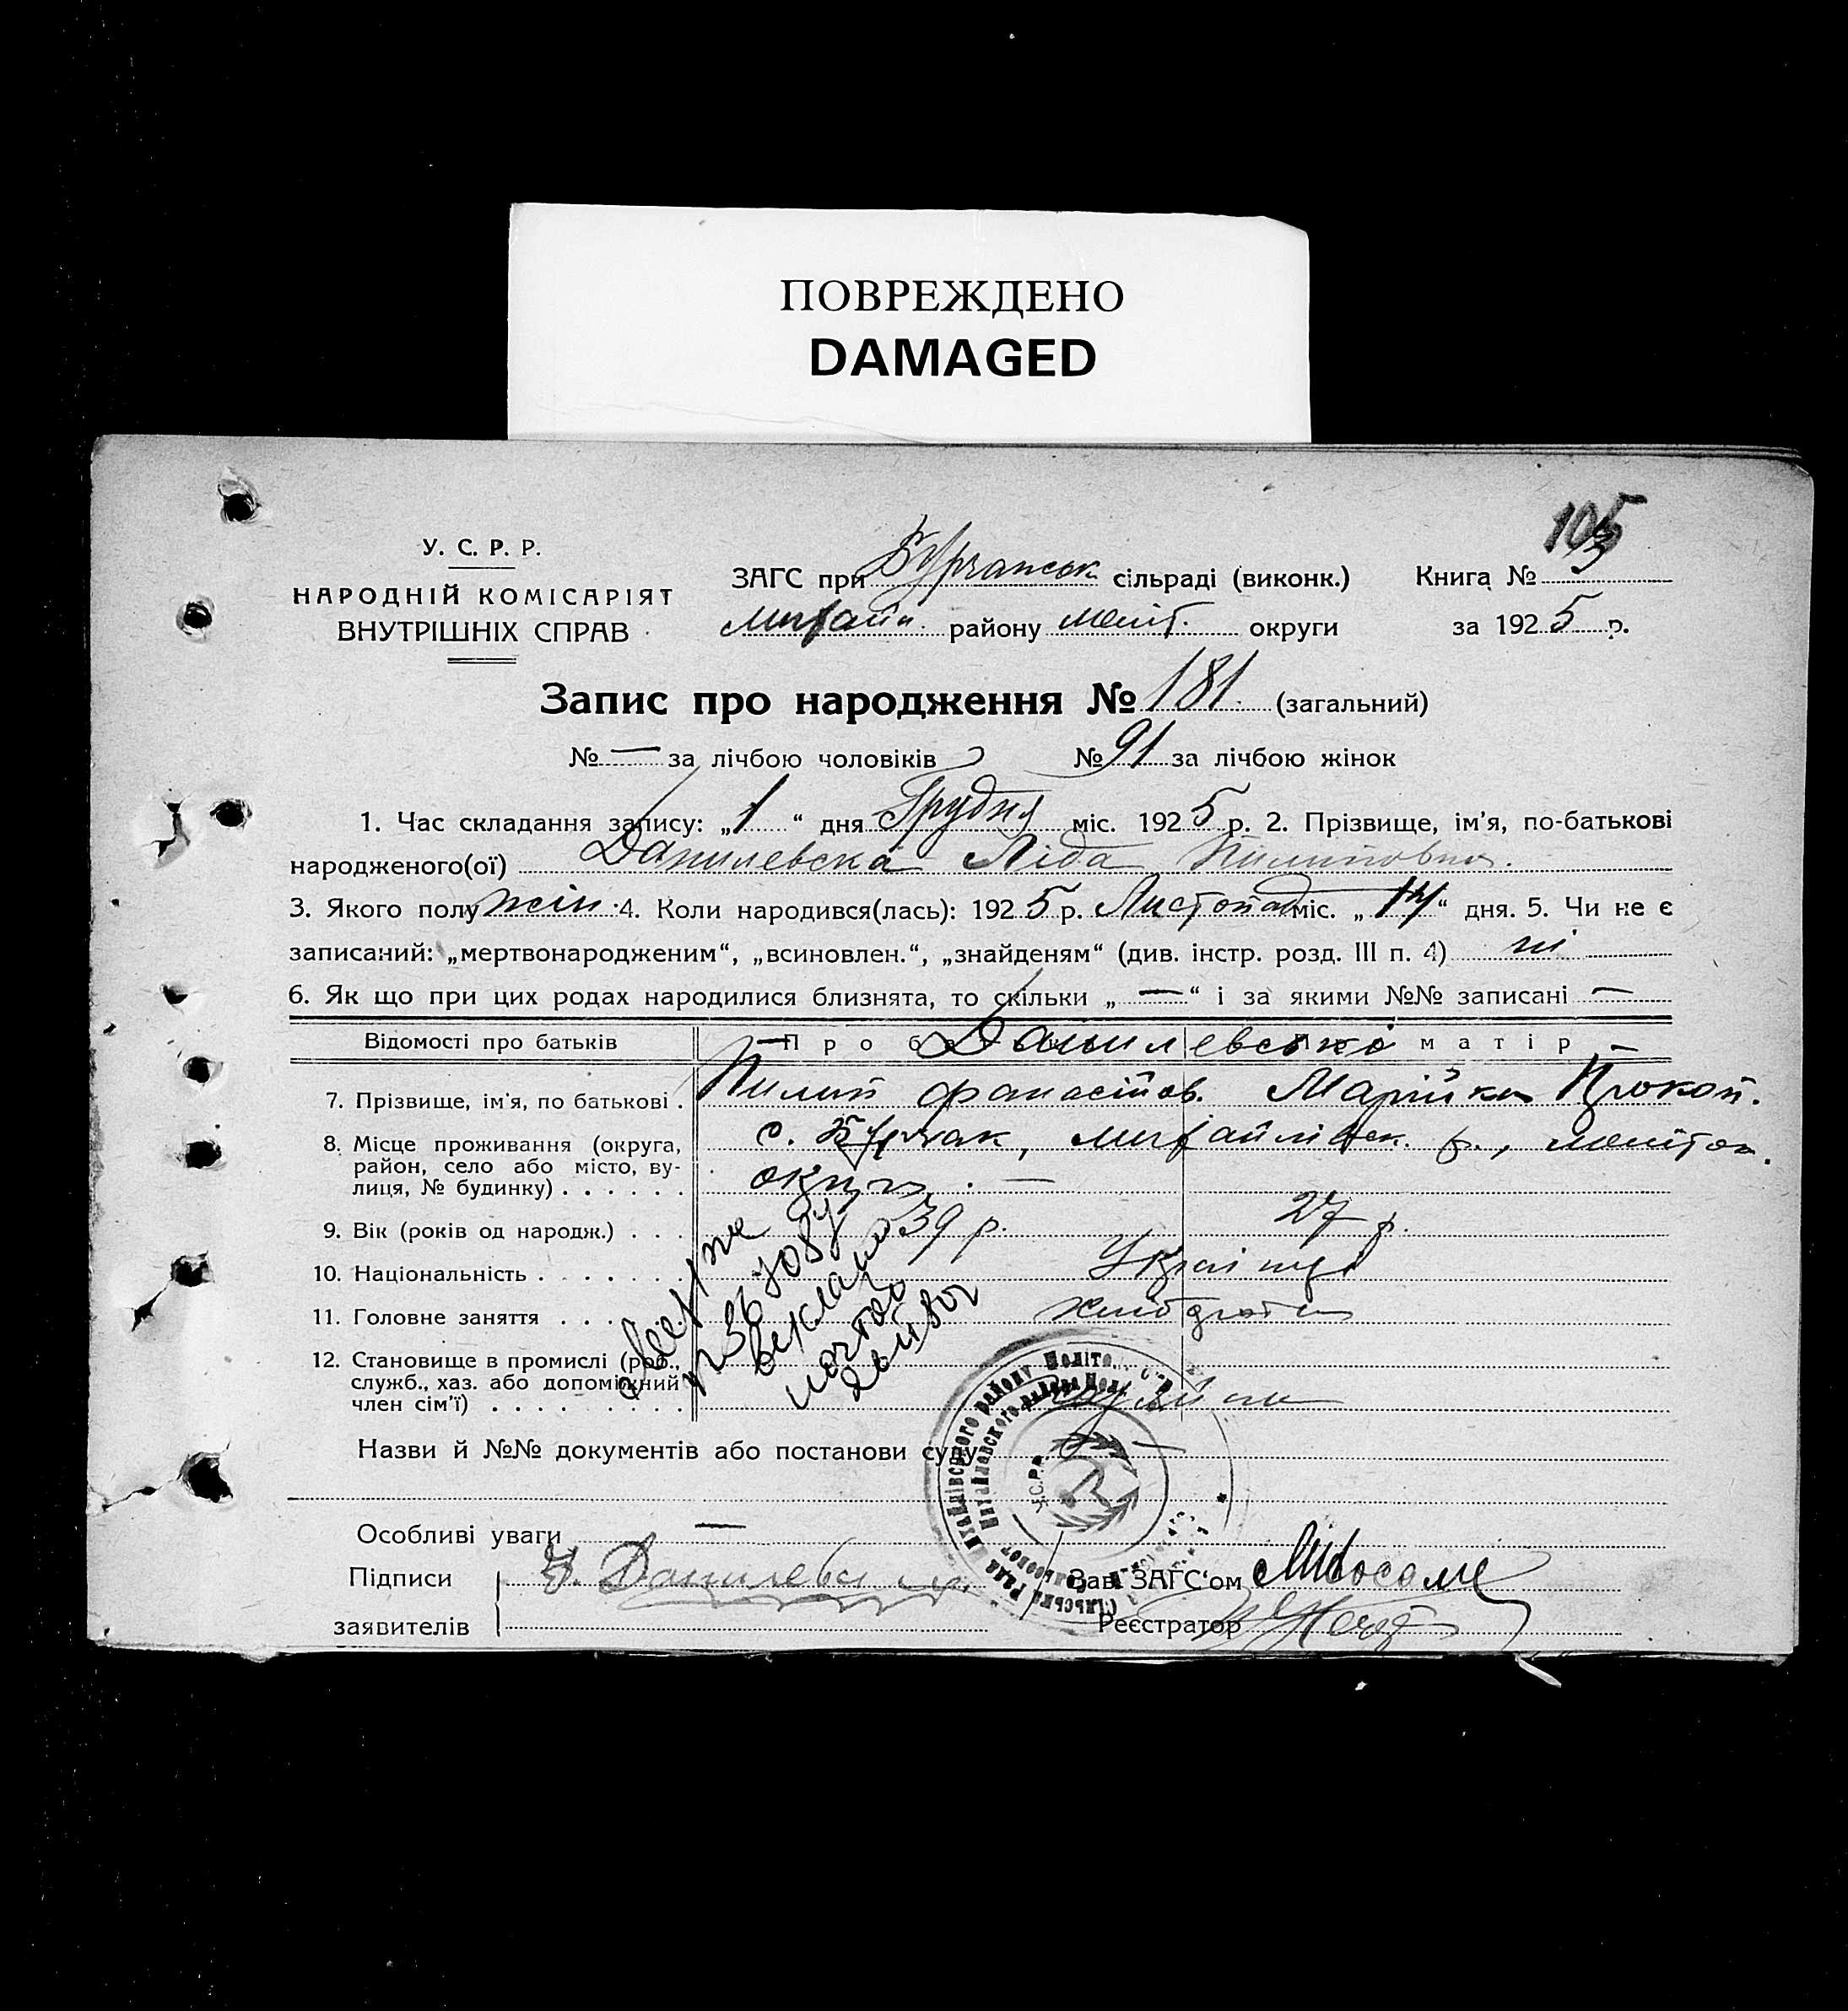 ПОВРЕЖДЕНО
DAMAGED
105
У. С. Р. Р.
НАРОДНІЙ КОМІСАРІЯТ
ВНУТРІШНІХ СПРАВ
ЗАГС при Бурчанськ сільраді (виконк.) Книга № 3
Михайл. району Меліт. округи за 1925 р.
Запис про народження № 181. (загальний)
№ — за лічбою чоловіків № 91 за лічбою жінок
1. Час складання запису: „1“ дня Грудня міс. 1925 р. 2. Прізвище, ім'я, по-батькові
народженого(ої) Данилевска Ліда Пилиповна.
3. Якого полу жін. 4. Коли народився(лась): 1925 р. Листопад міс. „14“ дня. 5. Чи не є
записаний: „мертвонародженим“, „всиновлен.“, „знайденям“ (див. інстр. розд. III п. 4) ні
6. Як що при цих родах народилися близнята, то скільки „—“ і за якими №№ записані —
Відомості про батьків Про матір
Данилевські
7. Прізвище, ім'я, по батькові . Пилип Марійка Прокоп.
8. Місце проживання (округа, с. Бурчак, Михайлівск. р., Мелітоп.
район, село або місто, ву- округи. —
лиця, № будинку) . . . . . .
9. Вік (років од народж.) . . . 39 р. 27 р.
10. Національність . . . . . . . Українці
11. Головне заняття . . . . хлібороби
12. Становище в промислі (роб.,
служб., хаз. або допоміжний
член сім'ї) . . . . . . . . .
Назви й №№ документів або постанови суду —
Особливі уваги —
Підписи Данилевск
Зав. ЗАГС'ом
заявителів Реєстратор
У.С.Р.Р.